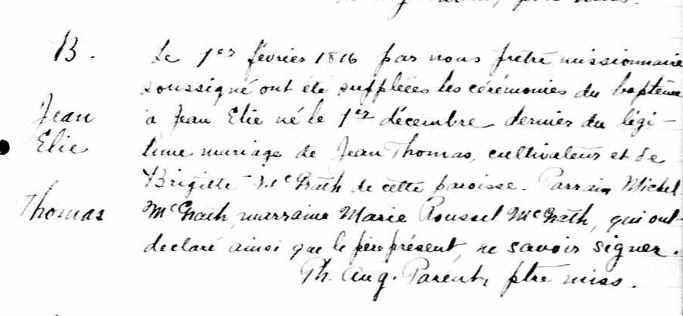 B.
Jean
Elie
Thomas
Le 1er février 1816 par nous prêtre missionnaire
soussigné ont été suppléées les cérémonies du baptême
à Jean Elie né le 1er décembre dernier du légi-
time mariage de Jean Thomas, cultivateur et de
Brigitte McGrath de cette paroisse. Parrain Michel
McGrath, marraine Marie Roussel McGrath, qui ont
declaré ainsi que le père présent, ne savoir signer.
Ph. Aug. Parent, ptre miss.